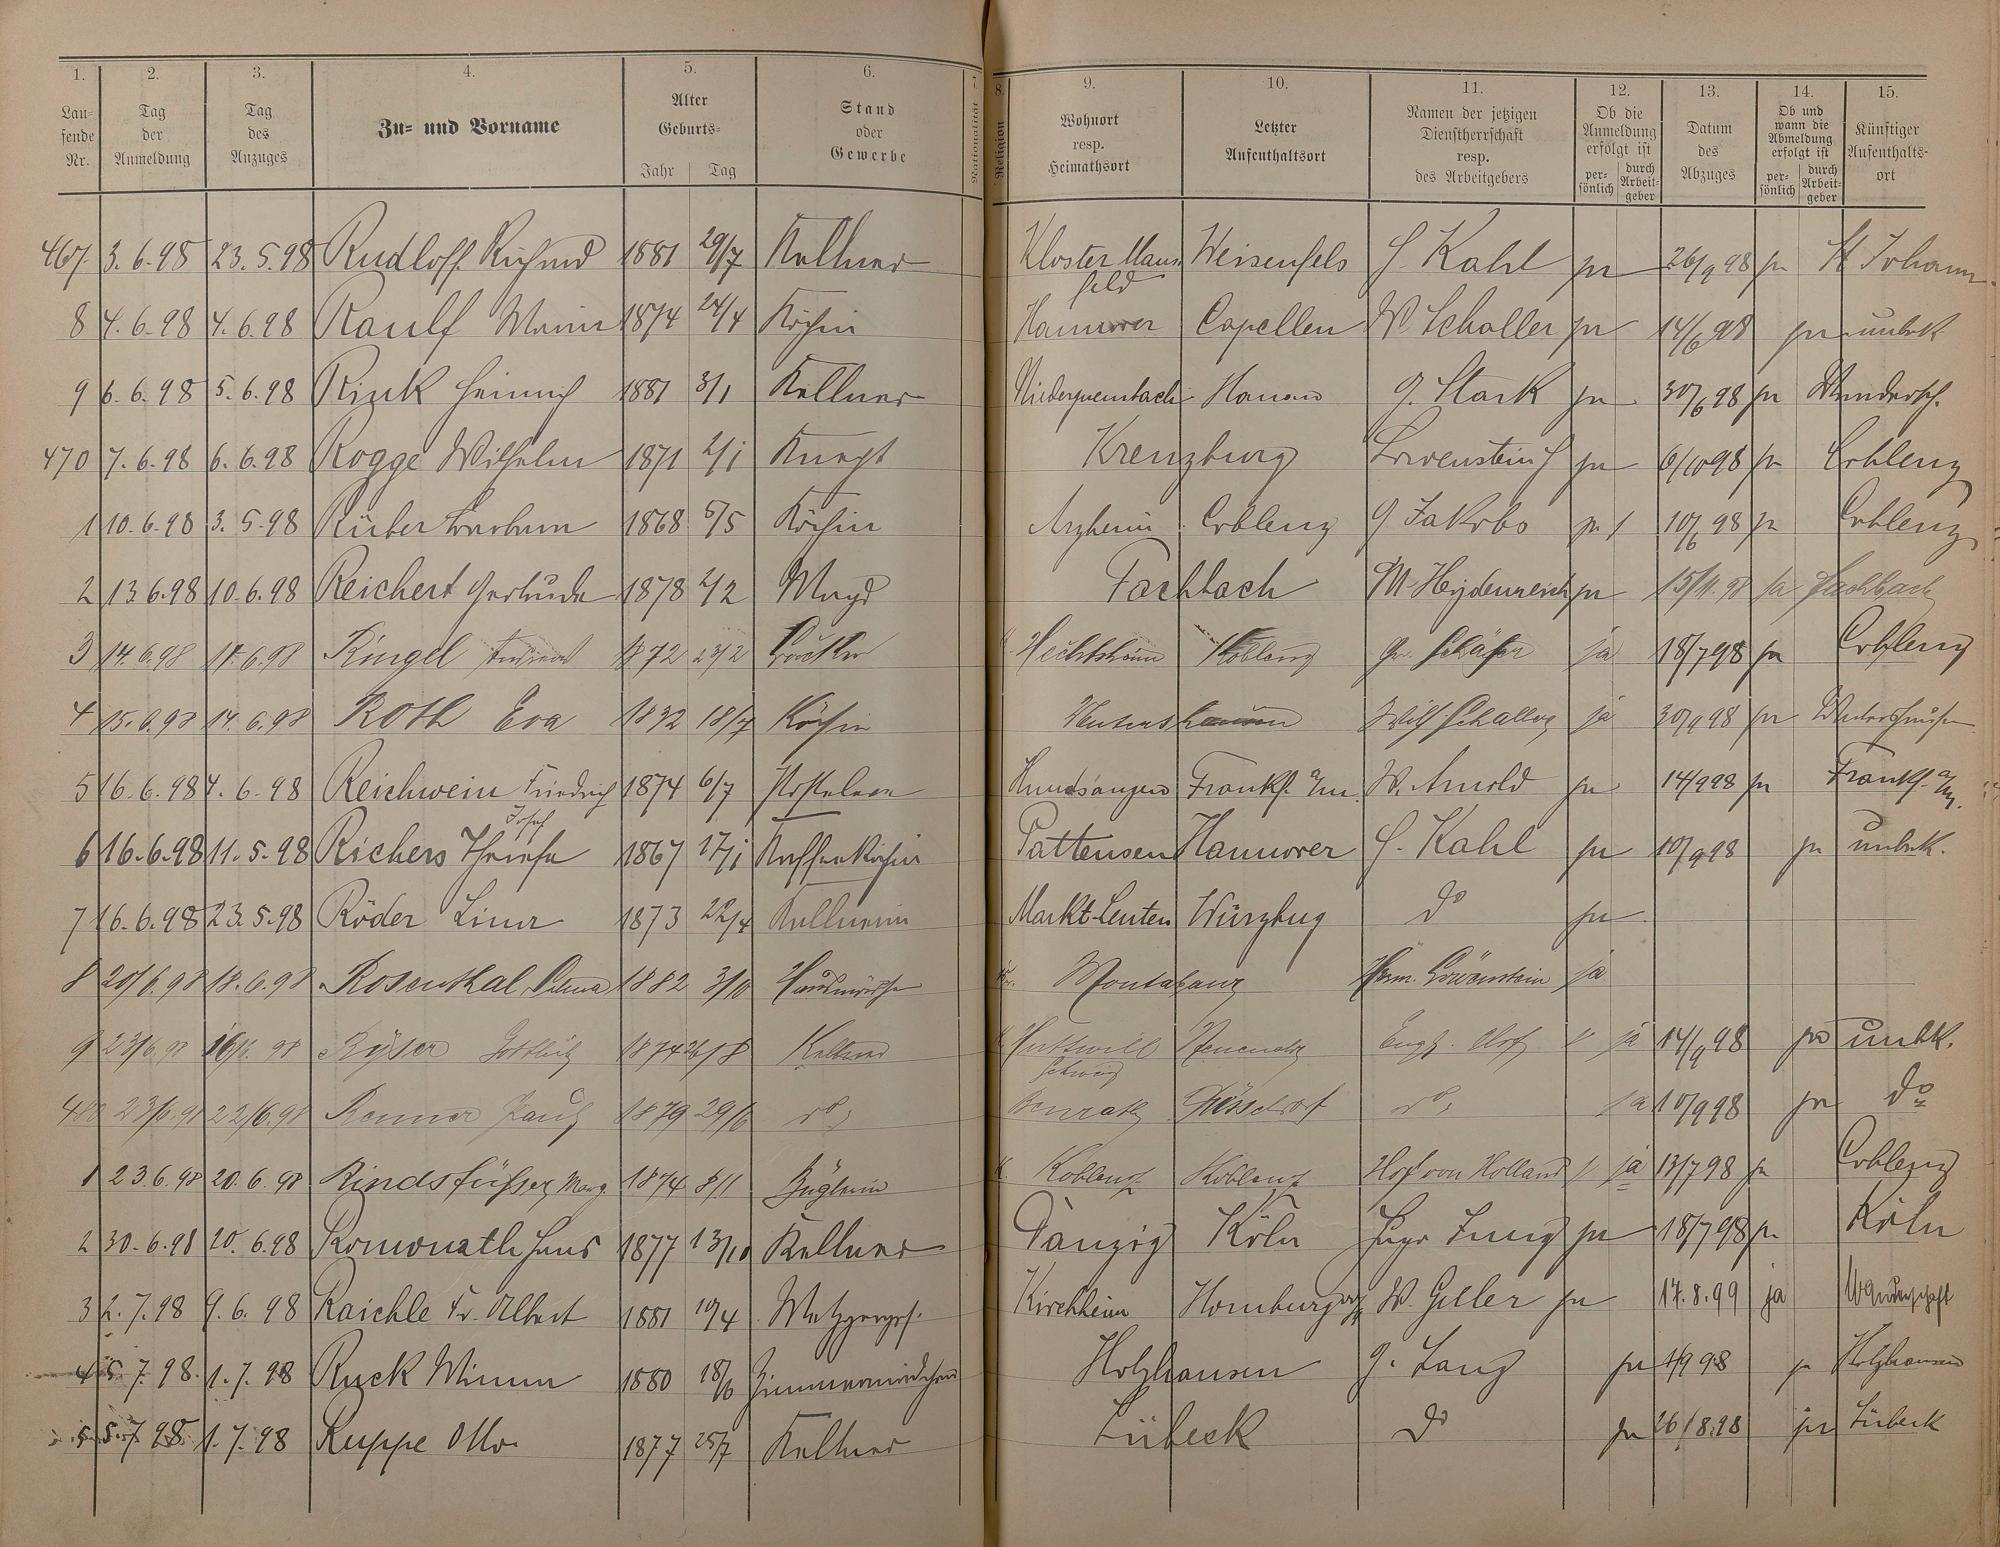 1. 2. 3. 4. 5. 6. 7 8. 9. 10. 11. 12. 13. 14. 15.
Lau-
fende
Nr.
Tag
der
Anmeldung
Tag
des
Anzuges
Zu- und Vorname
Alter
Geburts-
Jahr Tag
Stand
oder
Gewerbe
Nationalität
Religion
Wohnort
resp.
Heimathsort
Letzter
Aufenthaltsort
Namen der jetzigen
Dienstherrschaft
resp.
des Arbeitgebers
Ob die
Anmeldung
erfolgt ist
per-
sönlich
durch
Arbeit-
geber
Datum
des
Abzuges
Ob und
wann die
Abmeldung
erfolgt ist
per-
sönlich
durch
Arbeit-
geber
Künftiger
Aufenthalts-
ort
467. 3.6.98 23.5.98 Rudloff Richard 1881 29/7 Kellner Kloster Mans Weisenfels H. Kahl ja 26/9 98 ja St Johann
feld
8 4.6.98 4.6.98 Raulf 1874 24/4 Köchin Hannover Capellen W. Schaller ja 14/6 98 ja unbek
9 6.6.98 5.6.98 Rink Heinrich 1881 3/1 Kellner Hanau G. Stark ja 30/6 98 ja
470 7.6.98 6.6.98 Rogge Wilhelm 1871 2/1 Knecht Kreuzburg Löwenstein ja 6/10 98 ja Coblenz
1 10.6.98 3.5.98 Barbara 1868 5/5 Köchin Arzheim Coblenz G. Jakobs ja 10/6 98 ja Coblenz
2 13.6.98 10.6.98 Reichert Gertrude 1878 2/2 Magd Fachbach M. Heydenreich ja 15/11.98 ja Fachbach
3 14.6.98 11.6.98 Ringel 1872 23/2 Hechtsheim Koblenz Schäfer ja 18/7 98 ja Coblenz
4 15.6.98 14.6.98 Roth Eva 1832 18/7 Köchin Wilh Schaller ja 30/9 98 ja
5 16.6.98 4.6.98 Reichwein Friedrich 1874 6/7 Hundsangen Frankf. a/m. W. Arnold ja 14/9 98 ja Frankf. a/m.
Josef
6 16.6.98 11.5.98 Richers Therese 1867 17/1 Kaffeeköchin Pattensen Hannover H. Kahl ja 10/9 98 ja unbek.
7 16.6.98 23.5.98 Röder Lina 1873 22/4 Kellnerin Markt-Leuten Würzbug do ja
8 20/6.98 18.6.98 Rosenthal 1882 3/10 Montabaur Herm. Löwenstein ja
9 23/6.98 16/6.98 Ryser Gottlieb 1874 26/8 Kellner Huttwill Engl. Hof ja 14/9 98 ja unbk.
Schweiz
480 23/6.98 22/6.98 Renner 1879 29/6 do Benrath Düsseldorf do ja 10/9 98 ja do
1 23.6.98 20.6.98 Rindsfüßer Marg. 1874 8/11 Büglerin Koblenz Koblenz Hof von Holland ja 13/7 98 ja Coblenz
2 30.6.98 20.6.98 Hans 1877 13/10 Kellner Danzig Köln Hugo Jung ja 18/7 98 ja Köln
3 2.7.98 9.6.98 Raichle Fr. Albert 1881 10/4 Metzgerges. Kirchheim Homburg W. Geller ja 17.8.99 ja Wanderschaft
4 5.7.98. 1.7.98 Ruck Minna 1880 18/10 Zimmermädchen Holzhausen G. Lang ja 4/9 98 ja Holzhausen
5 5.7.98 1.7.98 Ruppe Otto. 1877 25/7 Kellner Lübeck do ja 26/8.98 ja Lübeck